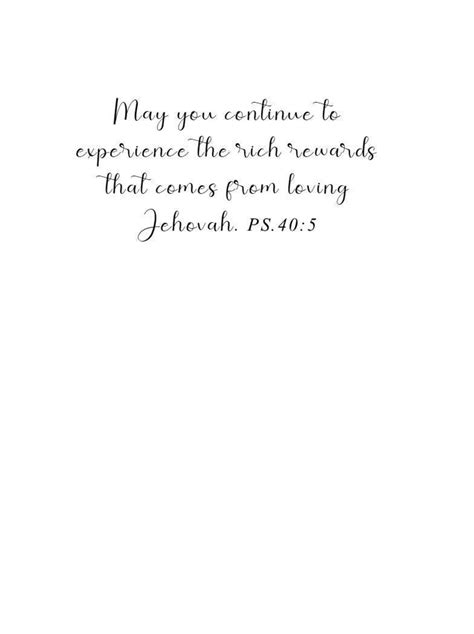 May you continue to
experience the rich rewards
that comes from loving
Jehovah. PS.40:5